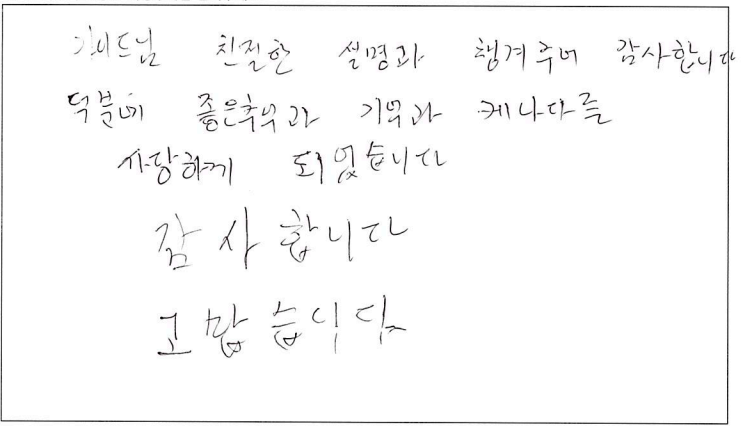 가이드님 친절한 설명과 챙겨주어 감사합니다
덕분에 좋은추억과 기억과 케나다를
사랑하게 되었습니다
감사합니다
고맙습니다